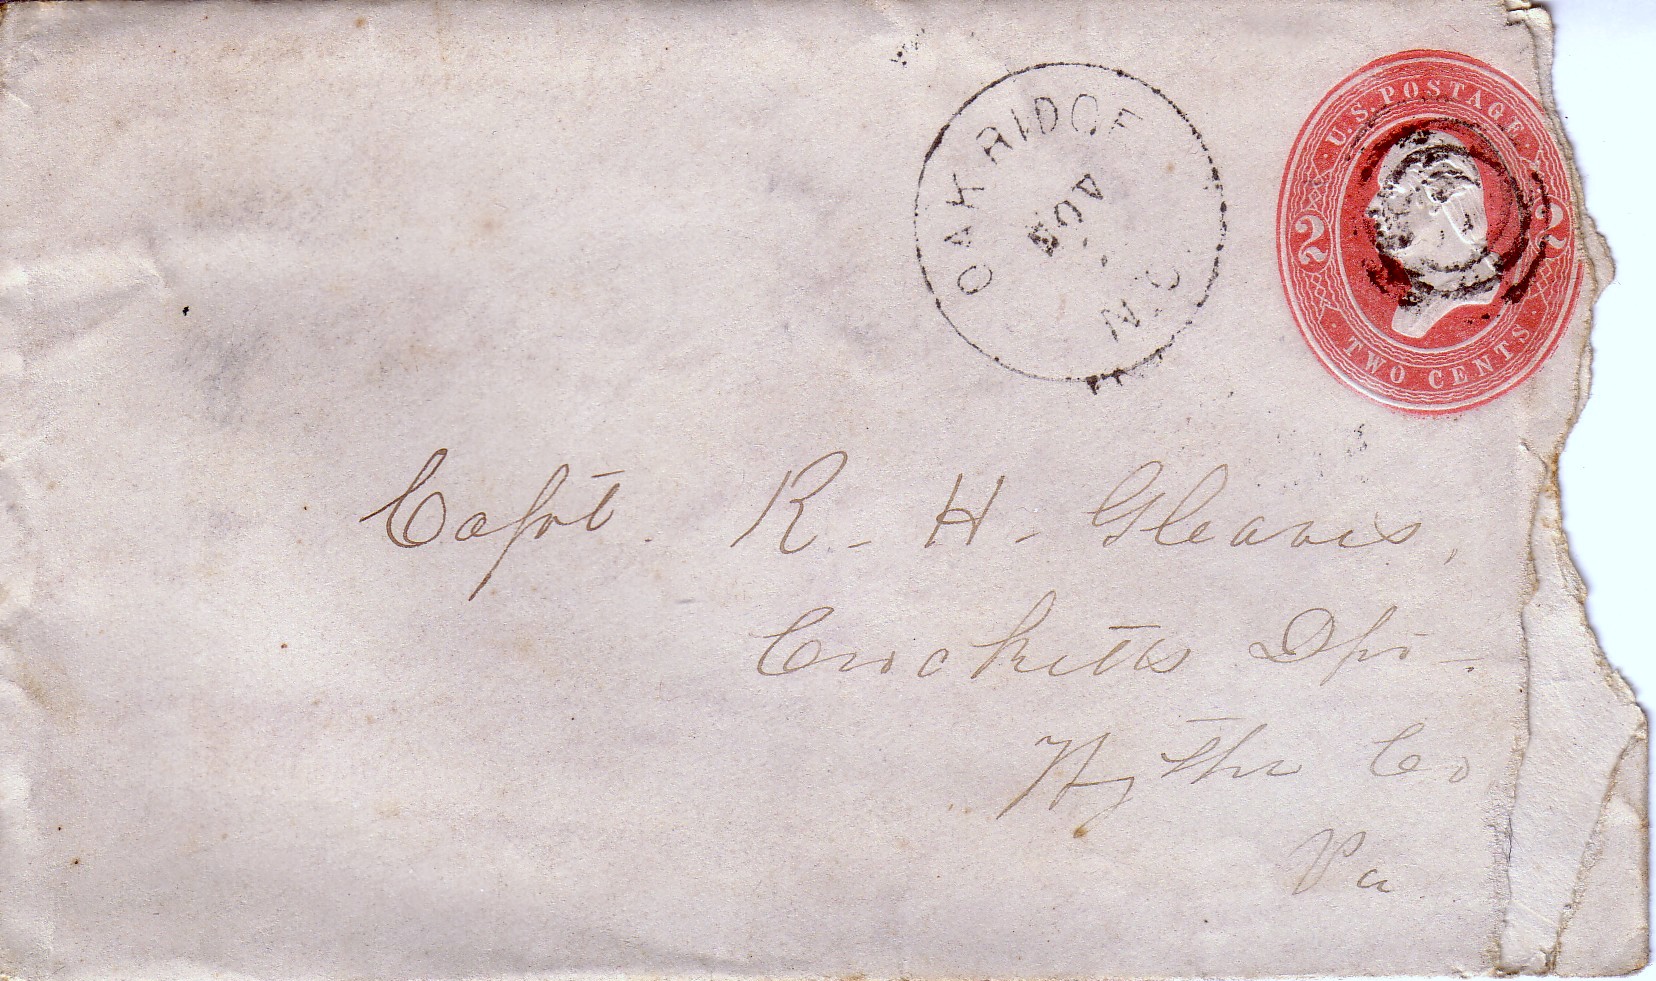 OAK RIDGE
N.C.
U.S. POSTAGE
2 2
TWO CENTS
Capt. R. H. Gleaves,
Crocketts Dpo.
Wythe Co
Va